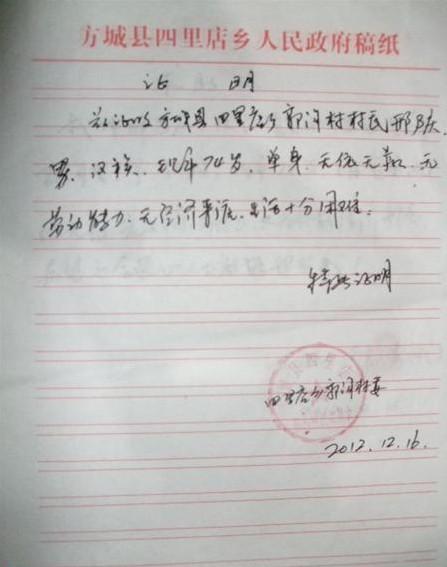 方城县四里店乡人民政府稿纸
证 明
兹证明方城县四里店乡郭沟村村民邢庆
男、汉族、现年74岁，单身，无依无靠、无
劳动能力、无经济来源，生活十分困难。
特此证明
四里店乡郭沟村委
2012.12.16.